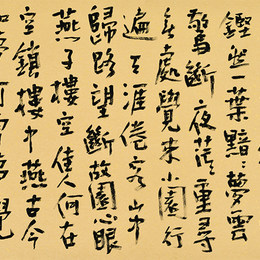 鏗然一葉黯〻夢雲
驚斷夜茫〻重尋
無處覺來小園行
遍天涯倦客山中
歸路望斷故園心眼
燕子樓空佳人何在
空鎖樓中燕古今
如夢何曾夢覺